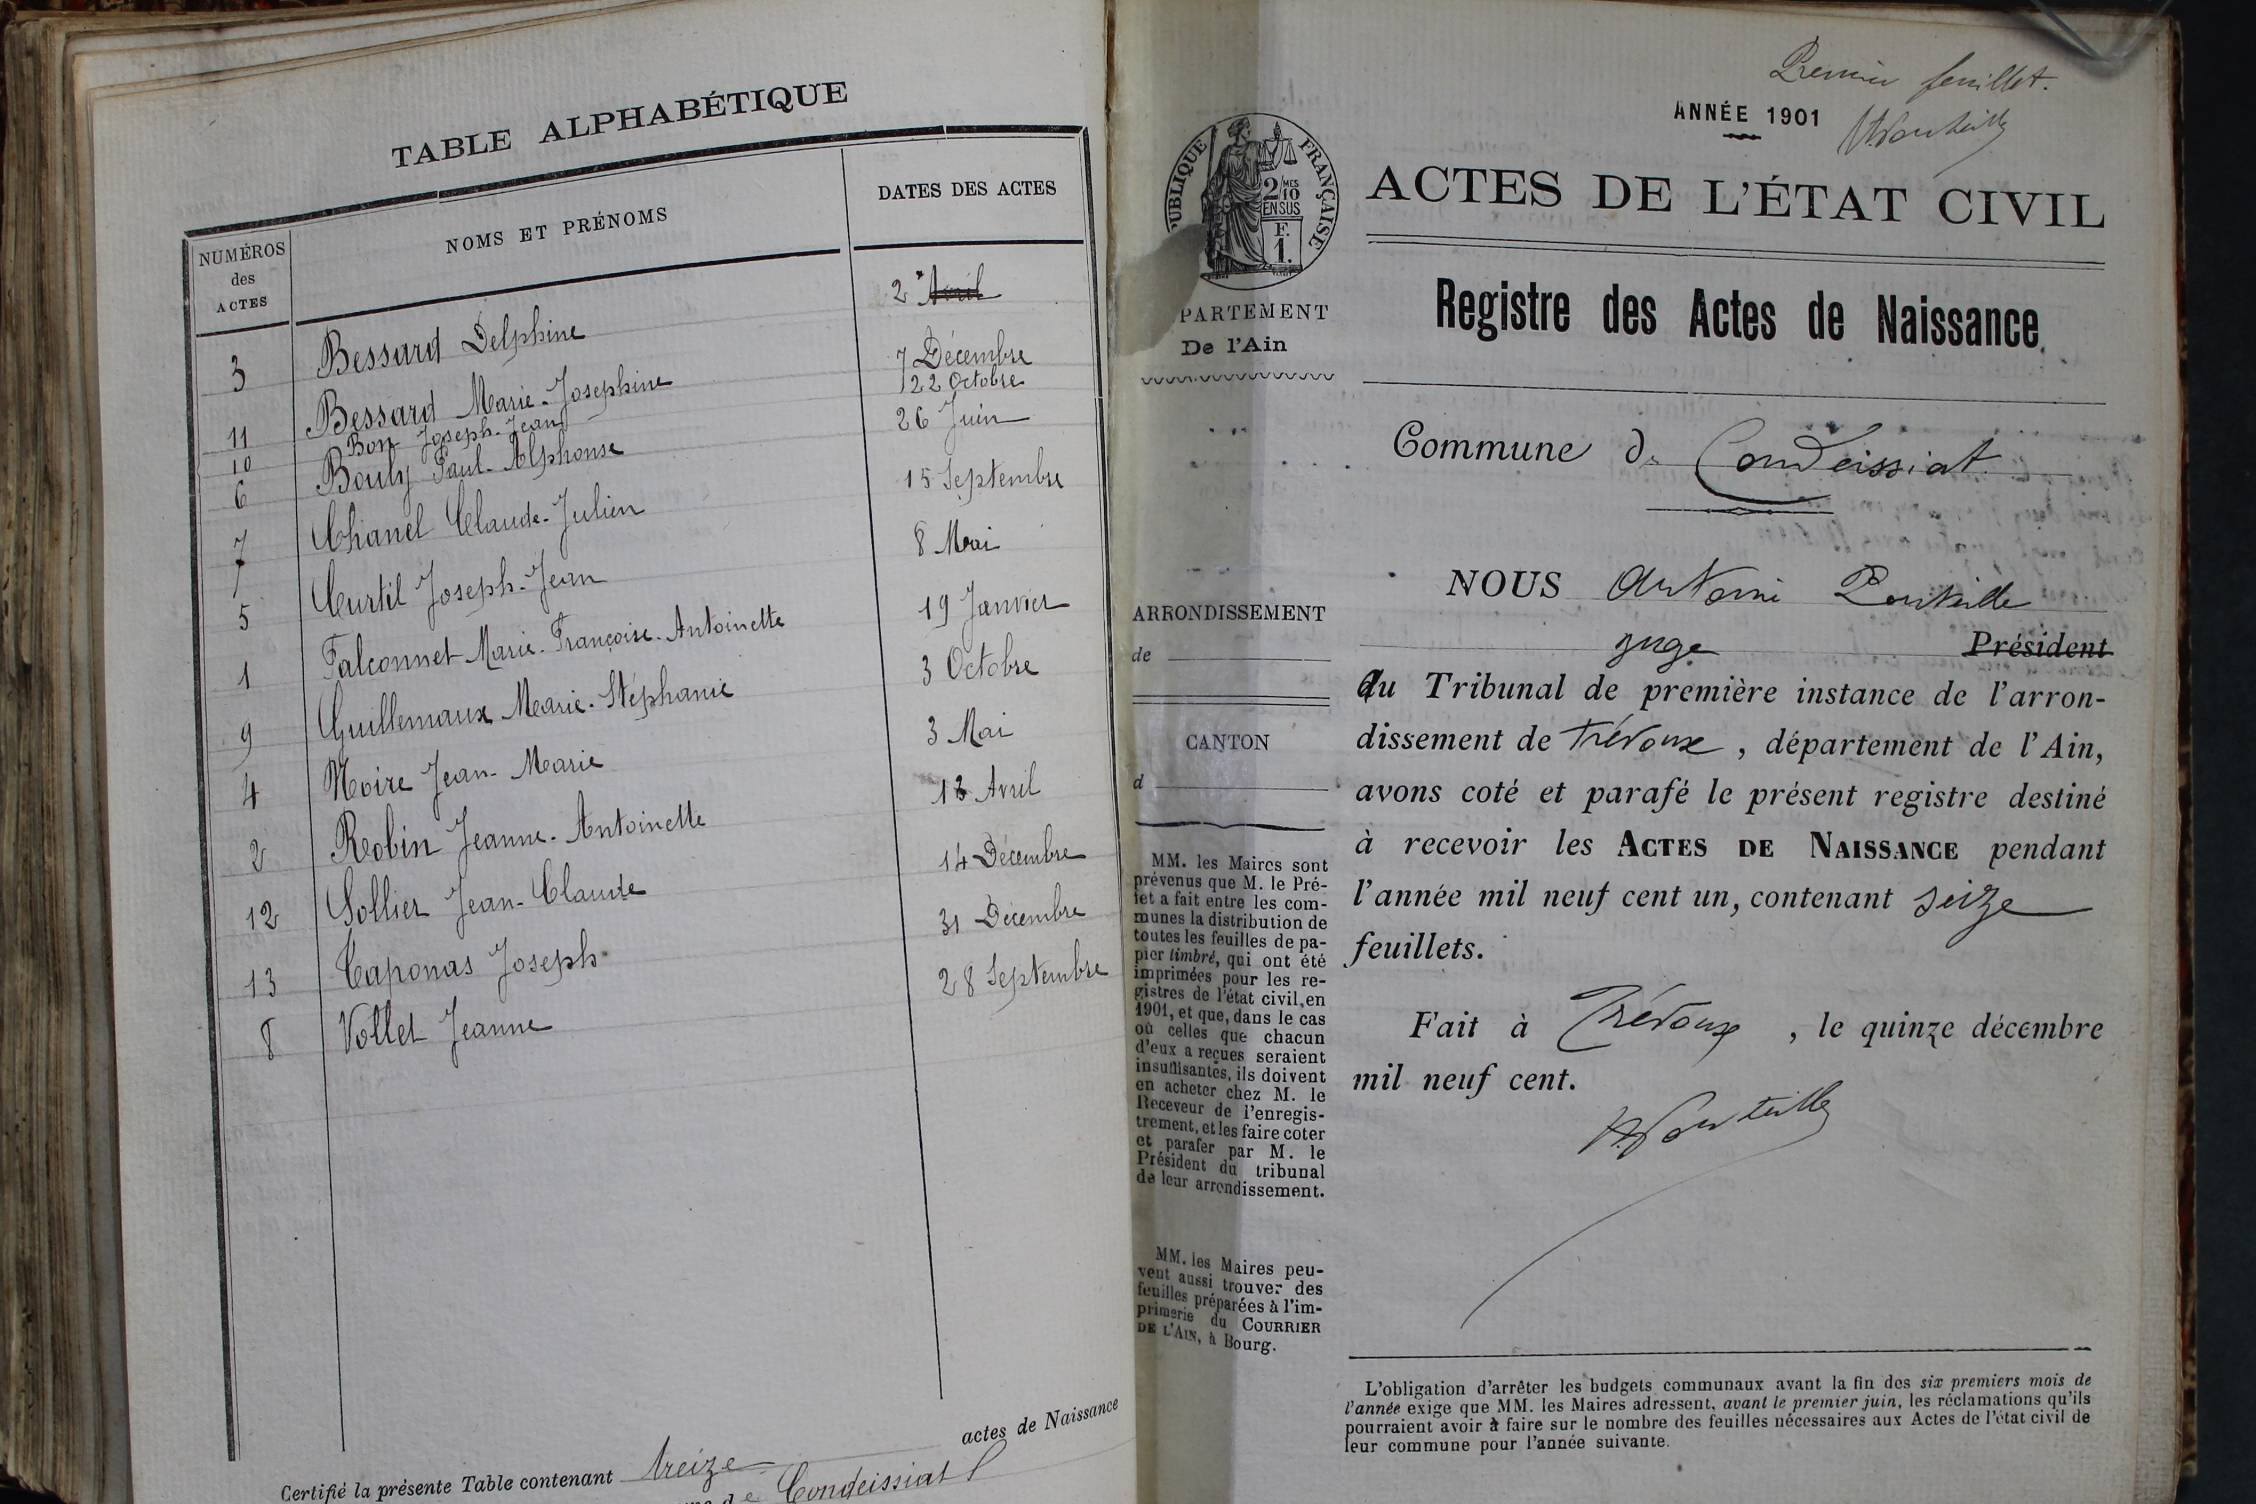 TABLE ALPHABÉTIQUE
NUMÉROS des ACTES
NOMS ET PRÉNOMS
DATES DES ACTES
3 Bessard Delphine 2 Avril
11 Bessard Marie-Josephine 7 Décembre
10 Bon Joseph-Jean 22 Octobre
6 Bouly Paul-Alphonse 26 Juin
7 Chanel Claude-Julien 15 Septembre
5 Curtil Joseph-Jean 8 Mai
1 Falconnet Marie-Françoise-Antoinette 19 Janvier
9 Guillemaux Marie-Stéphanie 3 Octobre
4 Moire Jean-Marie 3 Mai
2 Robin Jeanne-Antoinette Avril
12 Sollier Jean-Claude 14 Décembre
13 Taponas Joseph 31 Décembre
8 Vollet Jeanne 28 Septembre
Certifié la présente Table contenant treize actes de Naissance
de Condeissiat
Premier feuillet.
ANNÉE 1901
APouteille
RÉPUBLIQUE FRANÇAISE
2/10 MES
EN SUS
F.
1.
ACTES DE L'ÉTAT CIVIL
Registre des Actes de Naissance
PARTEMENT
De l'Ain
ARRONDISSEMENT
de
CANTON
d
MM. les Maires sont
prévenus que M. le Pré-
fet a fait entre les com-
munes la distribution de
toutes les feuilles de pa-
pier timbré, qui ont été
imprimées pour les re-
gistres de l'état civil, en
1901, et que, dans le cas
où celles que chacun
d'eux a reçues seraient
insuffisantes, ils doivent
en acheter chez M. le
Receveur de l'enregis-
trement, et les faire coter
et parafer par M. le
Président du tribunal
de leur arrondissement.
MM. les Maires peu-
vent aussi trouver des
feuilles préparées à l'im-
primerie du COURRIER
DE L'AIN, à Bourg.
Commune de Condeissiat
NOUS Antoine Pouteille
juge Président
du Tribunal de première instance de l'arron-
dissement de Trévoux, département de l'Ain,
avons coté et parafé le présent registre destiné
à recevoir les ACTES DE NAISSANCE pendant
l'année mil neuf cent un, contenant seize
feuillets.
Fait à Trévoux, le quinze décembre
mil neuf cent.
APouteille
L'obligation d'arrêter les budgets communaux avant la fin des six premiers mois de
l'année exige que MM. les Maires adressent, avant le premier juin, les réclamations qu'ils
pourraient avoir à faire sur le nombre des feuilles nécessaires aux Actes de l'état civil de
leur commune pour l'année suivante.